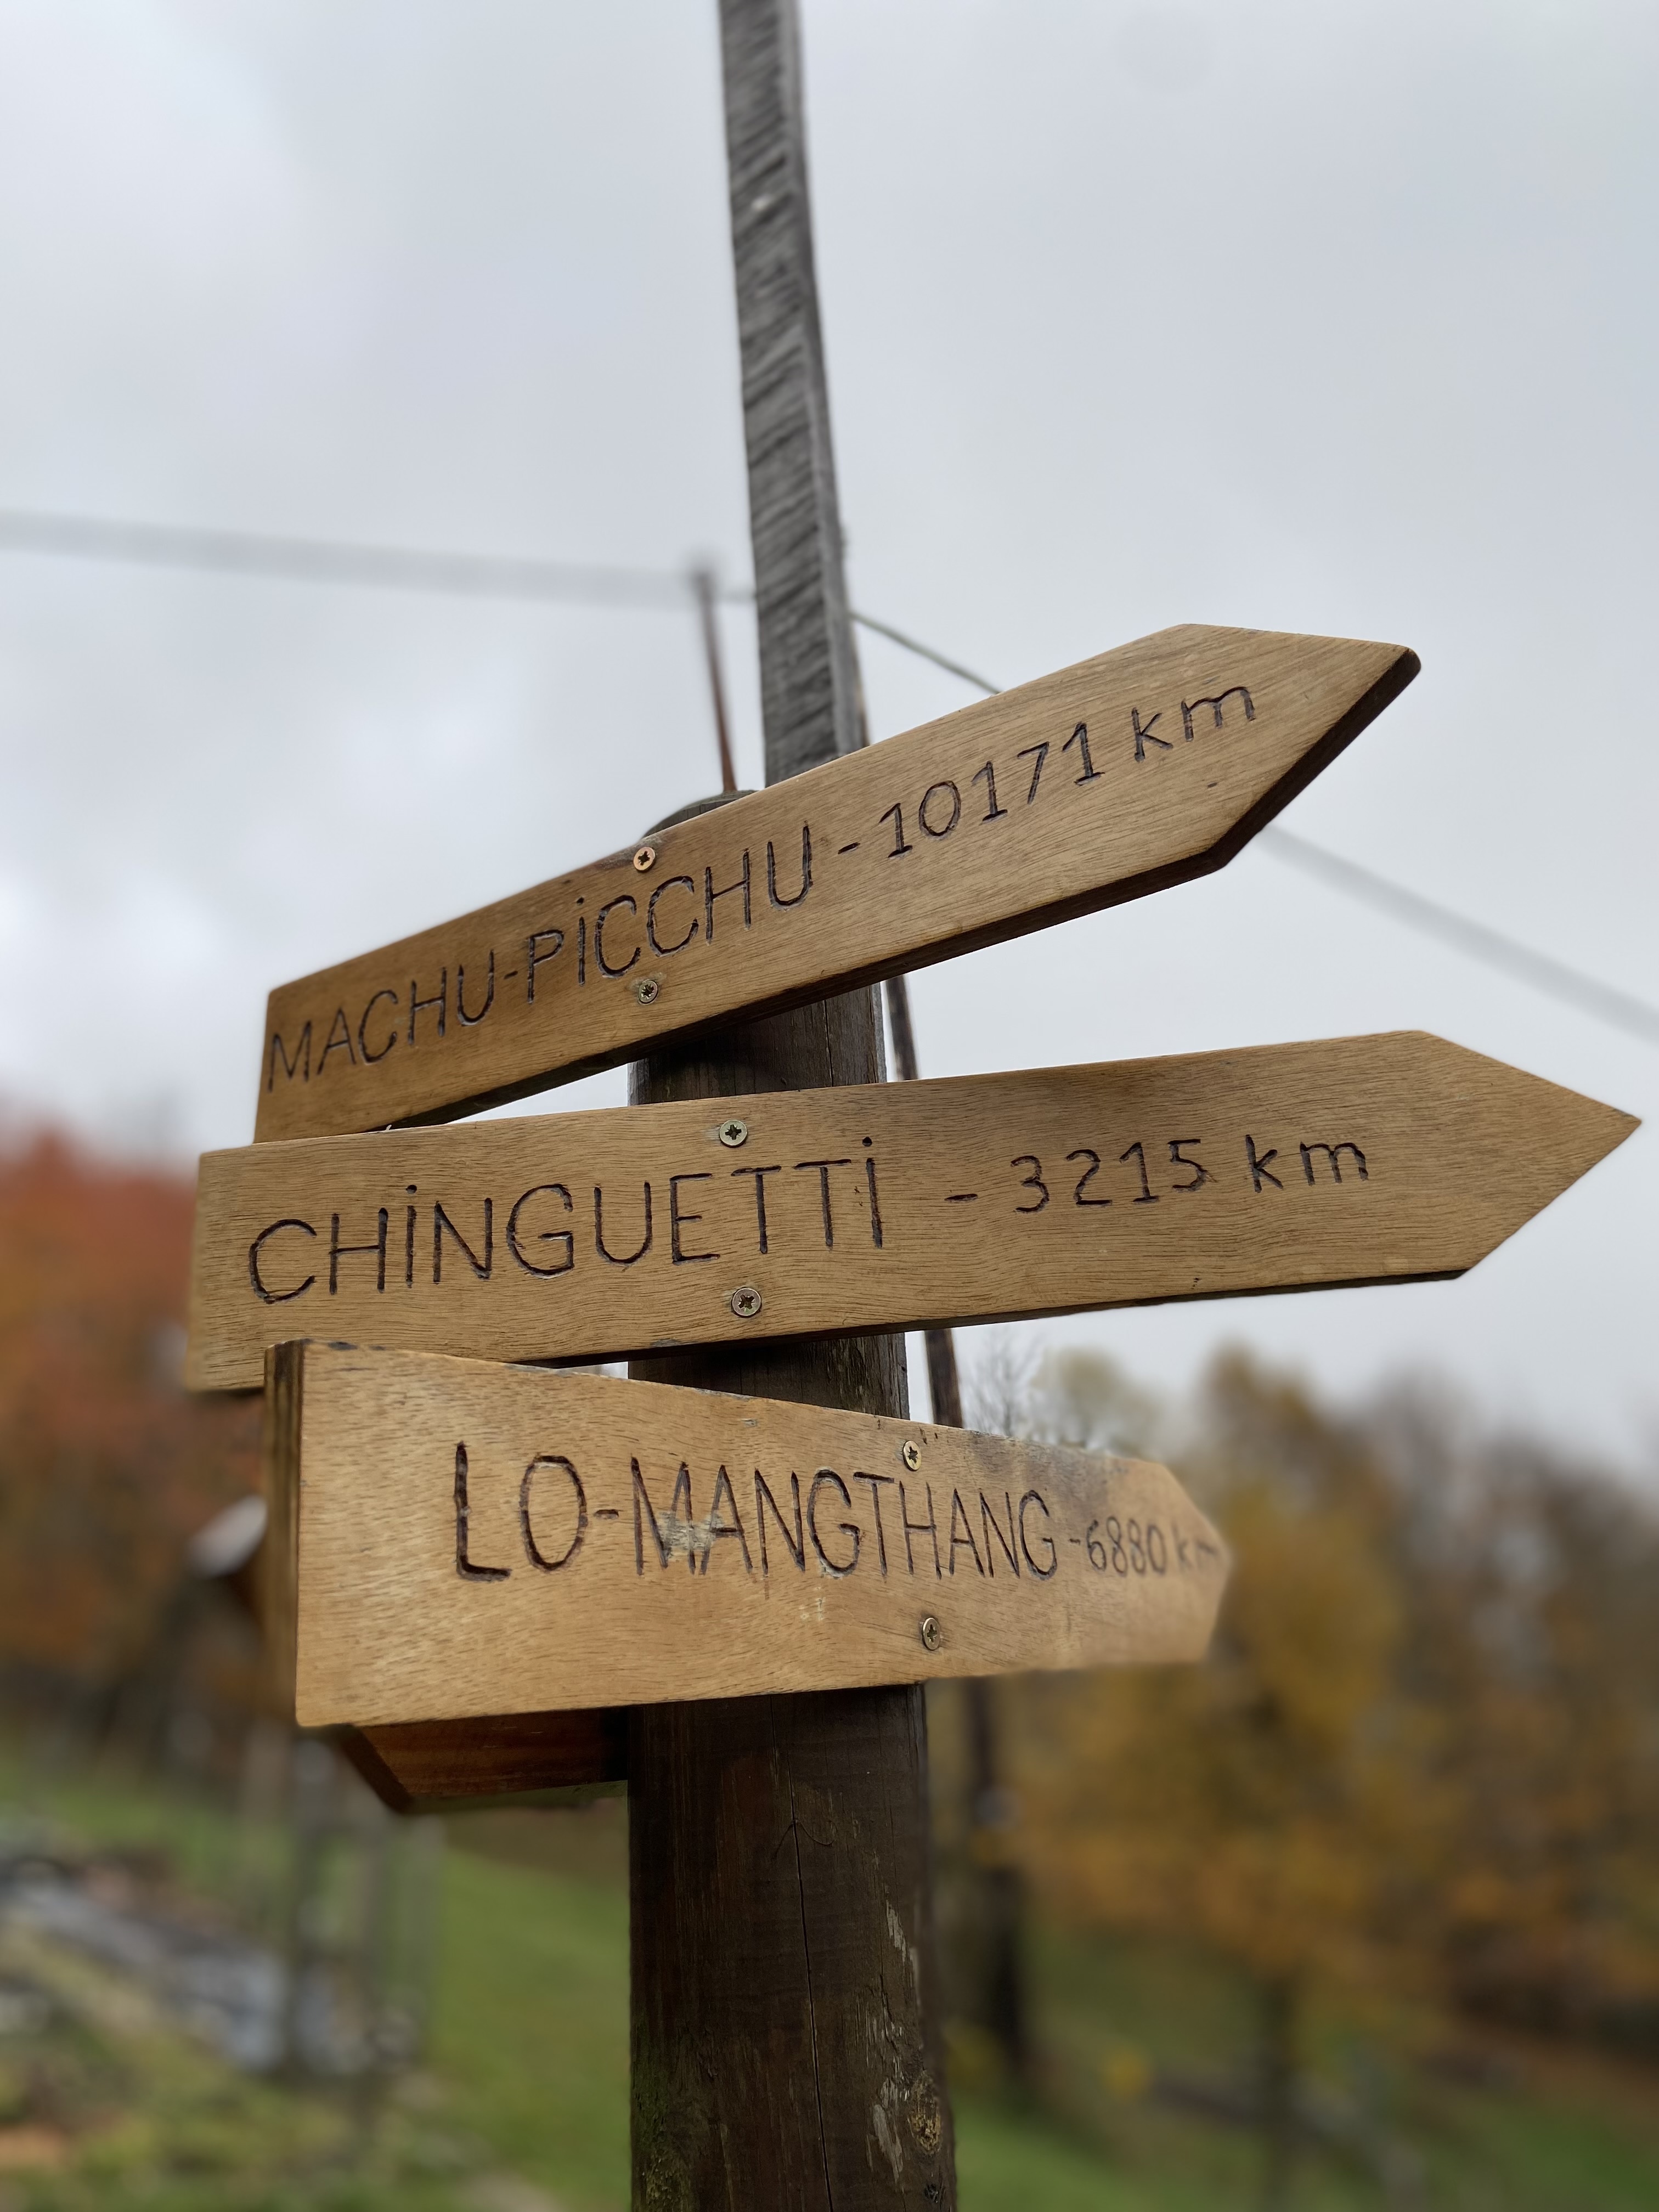 MACHU-PiCCHU-10171 km
CHiNGUETTi - 3215 km
LO-MANGTHANG-6880 km